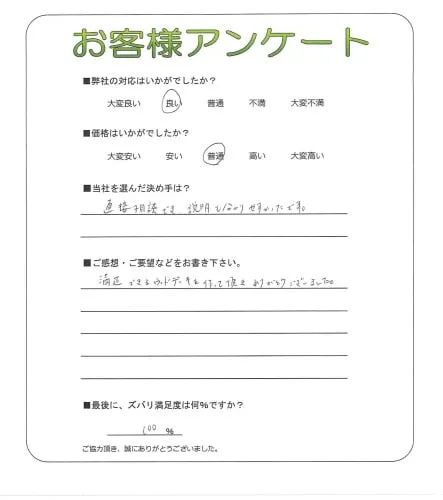 お客様アンケート
■弊社の対応はいかがでしたか？
大変良い 良い 普通 不満 大変不満
■価格はいかがでしたか？
大変安い 安い 普通 高い 大変高い
■当社を選んだ決め手は？
直接相談でき 説明もわかりやすかったです。
■ご感想・ご要望などをお書き下さい。
満足できるウッドデッキを作って頂きありがとうございました。
■最後に、ズバリ満足度は何％ですか？
100 %
ご協力頂き、誠にありがとうございました。